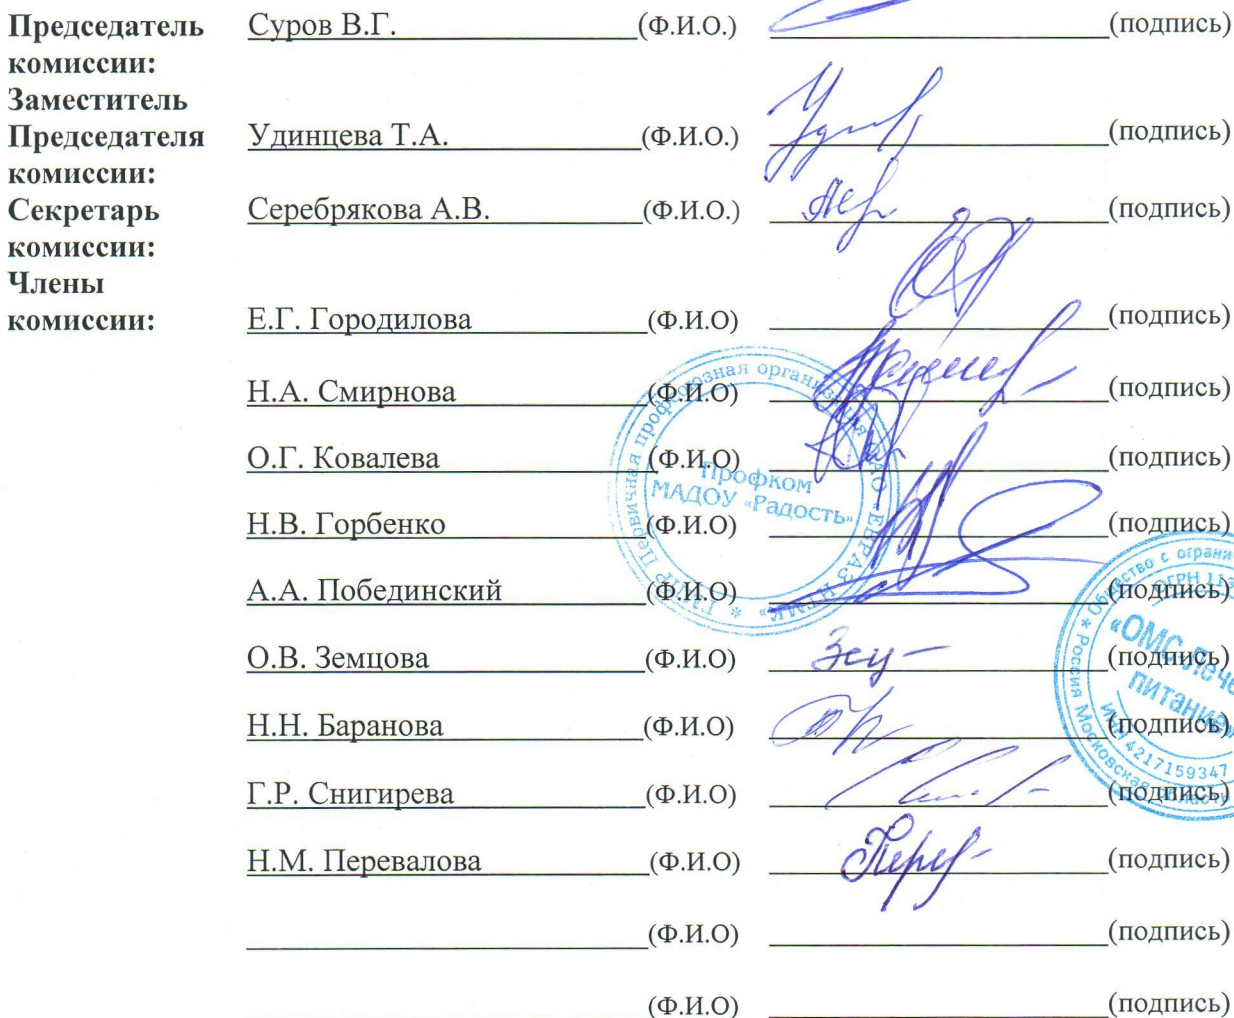 Председатель Суров В.Г. (Ф.И.О.) (подпись)
комиссии:
Заместитель
Председателя Удинцева Т.А. (Ф.И.О.) (подпись)
комиссии:
Секретарь Серебрякова А.В. (Ф.И.О.) (подпись)
комиссии:
Члены
комиссии: Е.Г. Городилова (Ф.И.О) (подпись)
Н.А. Смирнова (Ф.И.О) (подпись)
О.Г. Ковалева (Ф.И.О) (подпись)
Н.В. Горбенко (Ф.И.О) (подпись)
А.А. Побединский (Ф.И.О) (подпись)
О.В. Земцова (Ф.И.О) (подпись)
Н.Н. Баранова (Ф.И.О) (подпись)
Г.Р. Снигирева (Ф.И.О) (подпись)
Н.М. Перевалова (Ф.И.О) (подпись)
(Ф.И.О) (подпись)
(Ф.И.О) (подпись)
Первичная профсоюзная организация
«ЕВРАЗ НТМК» * ГМПР
Профком
МАДОУ «Радость»
Общество с
ОГРН
«ОМС-
питание»
ИНН 4217159347
Россия Московская область